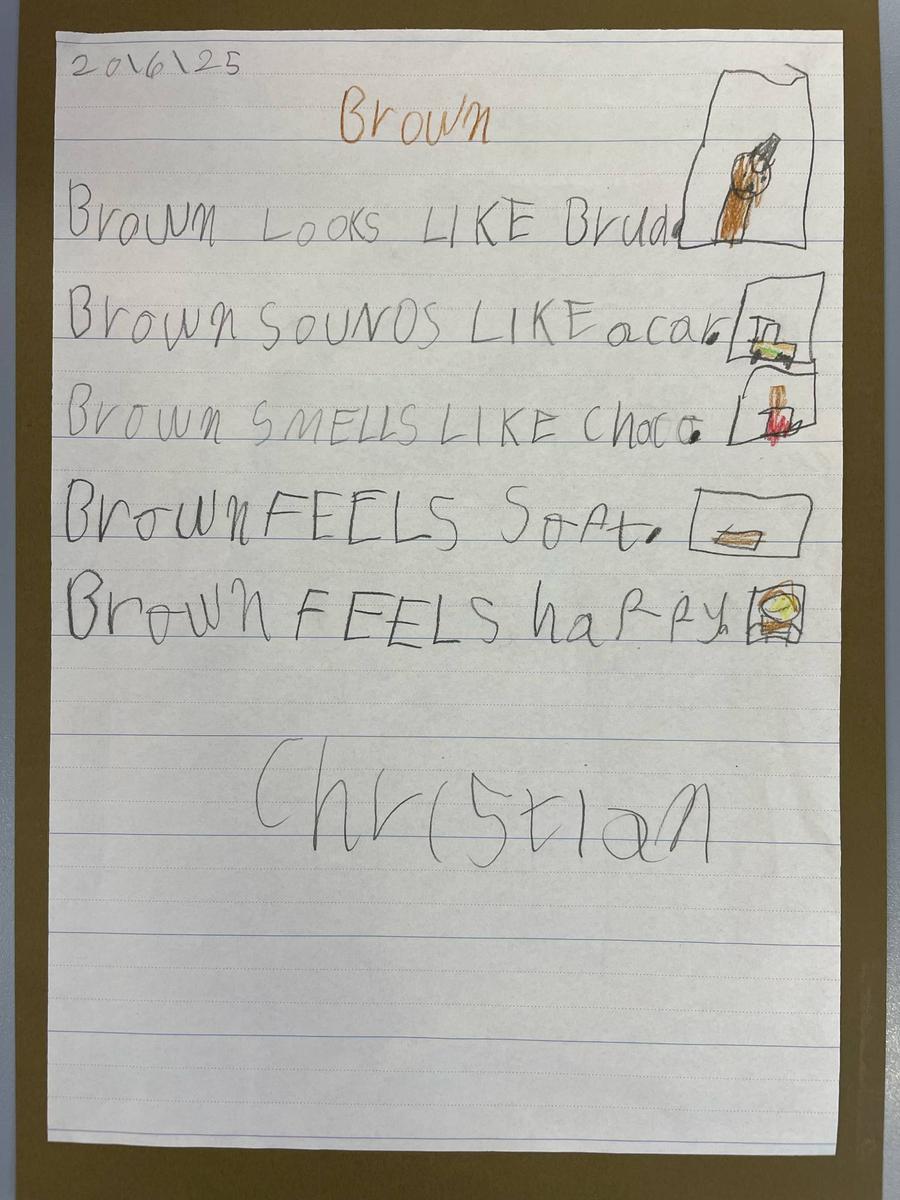 20\6\25
Brown
Brown LOOKS LIKE Brud.
Brown SOUNDS LIKE a car.
Brown SMELLS LIKE Choco.
Brown FEELS Soft.
Brown FEELS happy.
Christian